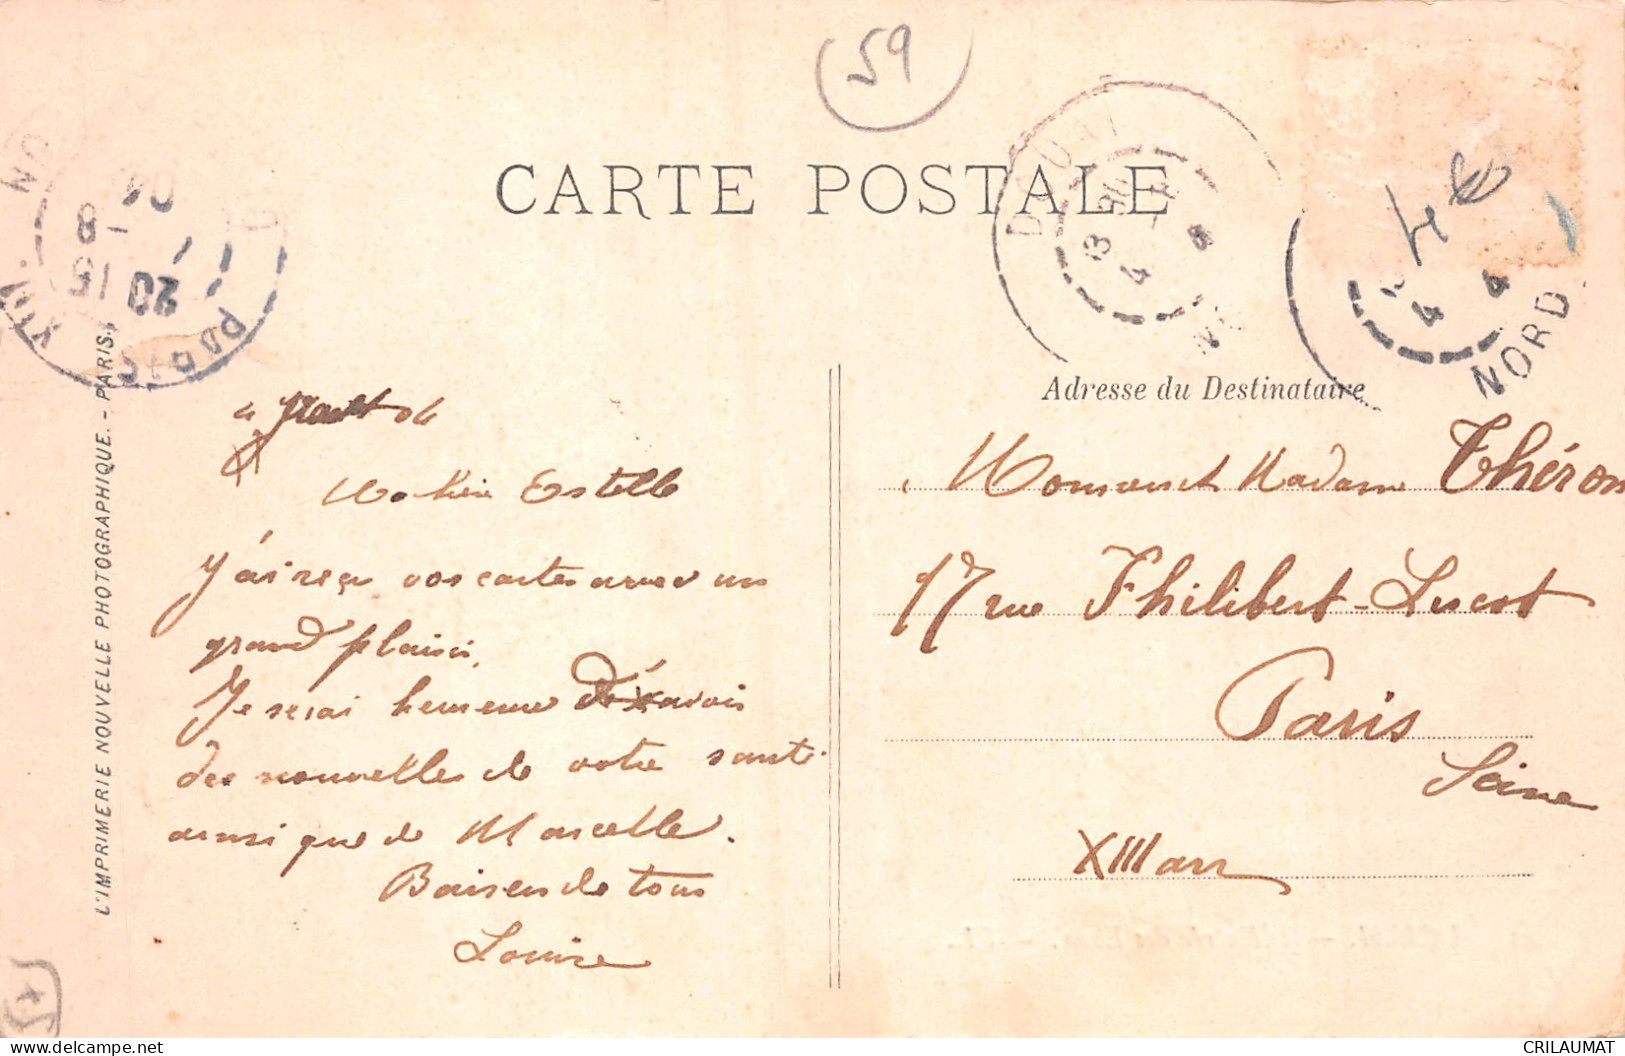 59
CARTE POSTALE
DOUAI
NORD
4
4
PARIS XIII
20 15
8
04
L'IMPRIMERIE NOUVELLE PHOTOGRAPHIQUE. - PARIS.
Adresse du Destinataire
4 04
Ma chère Estelle
J'ai reçu vos cartes avec un
grand plaisir.
Je serai heureuse d'avoir
des nouvelles de votre santé
ainsi que de Marcelle.
Baisers de tous
Louise
Monsieur et Madame Théron
17 rue Philibert-Lucot
Paris
Seine
XIII arr
CRILAUMAT